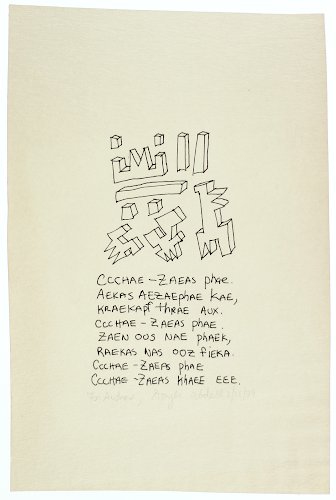 CCCHAE - ZAEAS phae.
AEKAS AEZAEphAE KAE,
KRAEKAPT ThRAE AUX.
CCCHAE - ZAEAS phAE.
ZAEN OOS NAE phAEK,
RAEKAS NAS OOZ fiEKA.
CCCHAE - ZAEAS phAE
CCCHAE - ZAEAS KhAEE EEE.